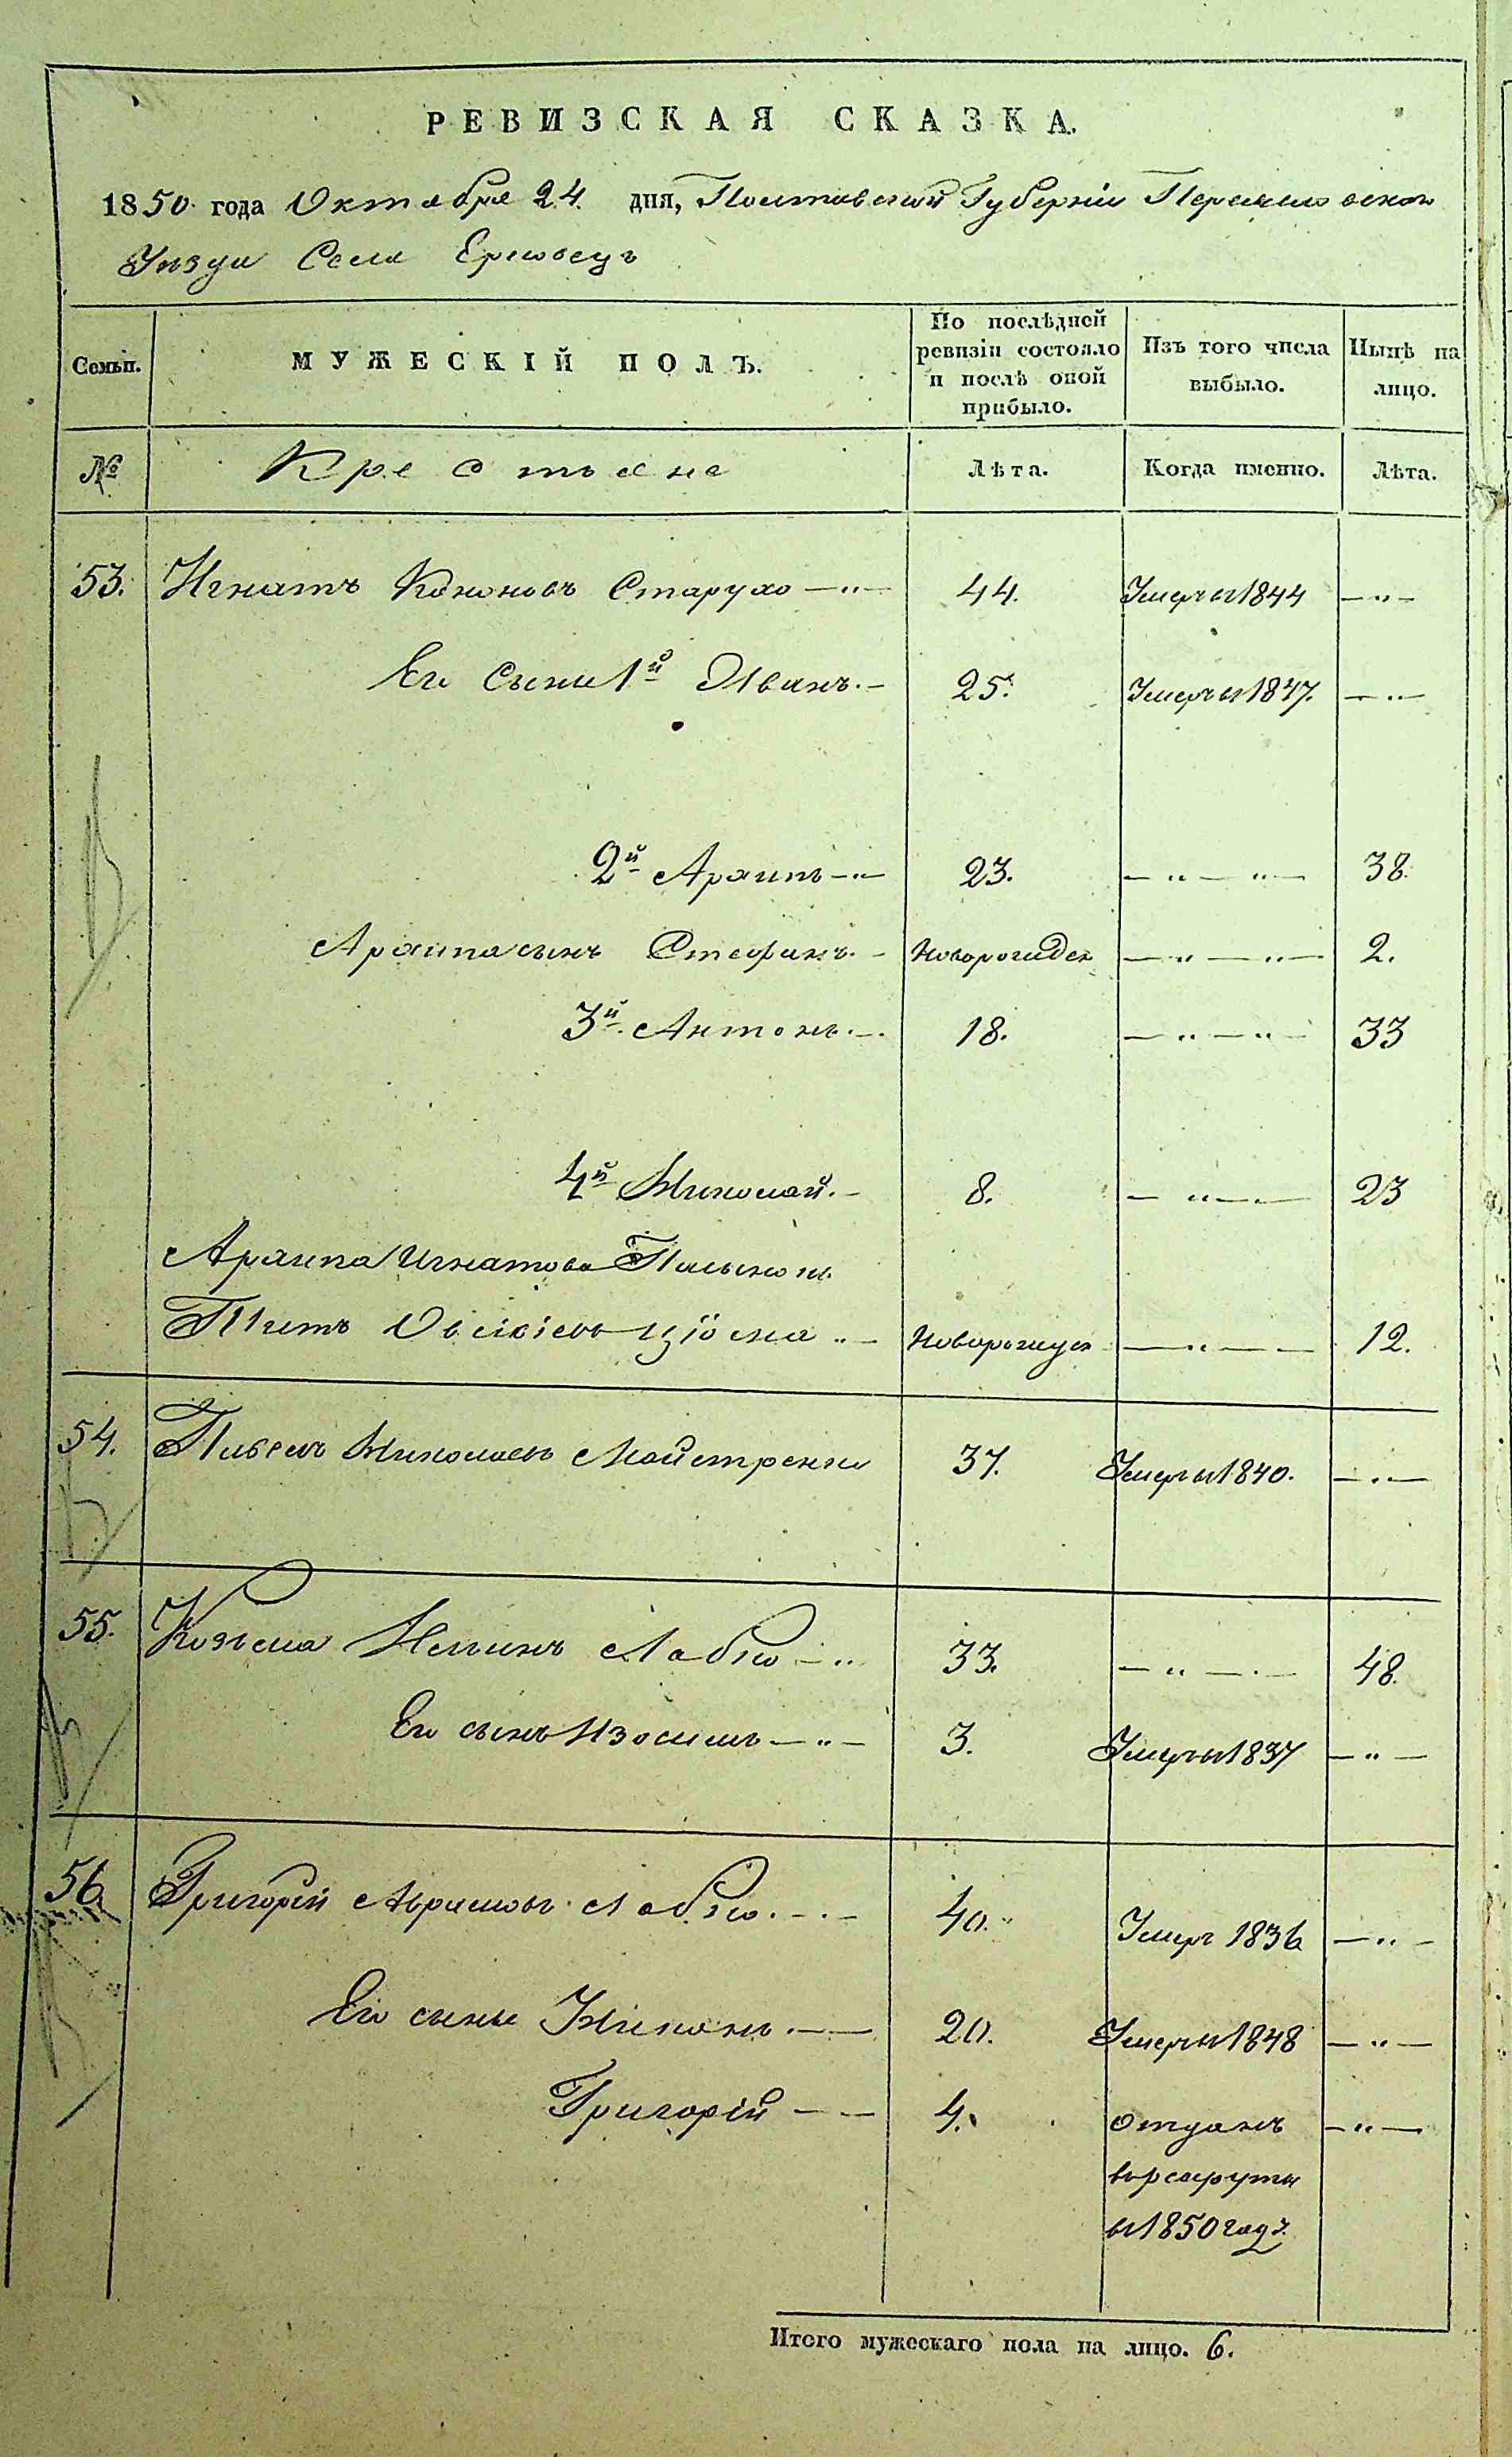 РЕВИЗСКАЯ СКАЗКА.
1850 года Октября 24 дня, Полтавской Губерніи Переяславскаго
Уѣзда Села Ерковецъ
Семьи. МУЖЕСКІЙ ПОЛЪ. По послѣдней ревизіи состояло и послѣ оной прибыло. Изъ того числа выбыло. Нынѣ на лицо.
№ Крестьяне Лѣта. Когда именно. Лѣта.
53. Игнатъ Кононовъ Старухо —"— 44. Умеръ въ 1844 —"—
Его Сыны 1й Иванъ.— 25. Умеръ въ 1847. —"—
2й Архипъ —"— 23. —"—"— 38.
Архипа сынъ Стефанъ.— Новорожден —"—"— 2.
3й Антонъ.— 18. —"—"— 33
4й Николай.— 8. —"—"— 23
Архипа Игнатова Пасынокъ
Титъ "— Новорожден —"—"— 12.
54. Павелъ Николаевъ Майстренко 37. Умеръ въ 1840. —"—
55. Козьма Лабзо —" 33. —"—"— 48.
Его сынъ Изосимъ —"— 3. Умеръ въ 1837 —"—
56. Григорій Аврамовъ Лабзо.—"— 40." Умеръ 1836 —"—
Его сыны Никонъ.—— 20. Умеръ въ 1848 —"—
Григорій —— 4. отданъ —"—
въ рекруты
въ 1850 году
Итого мужескаго пола на лицо. 6.